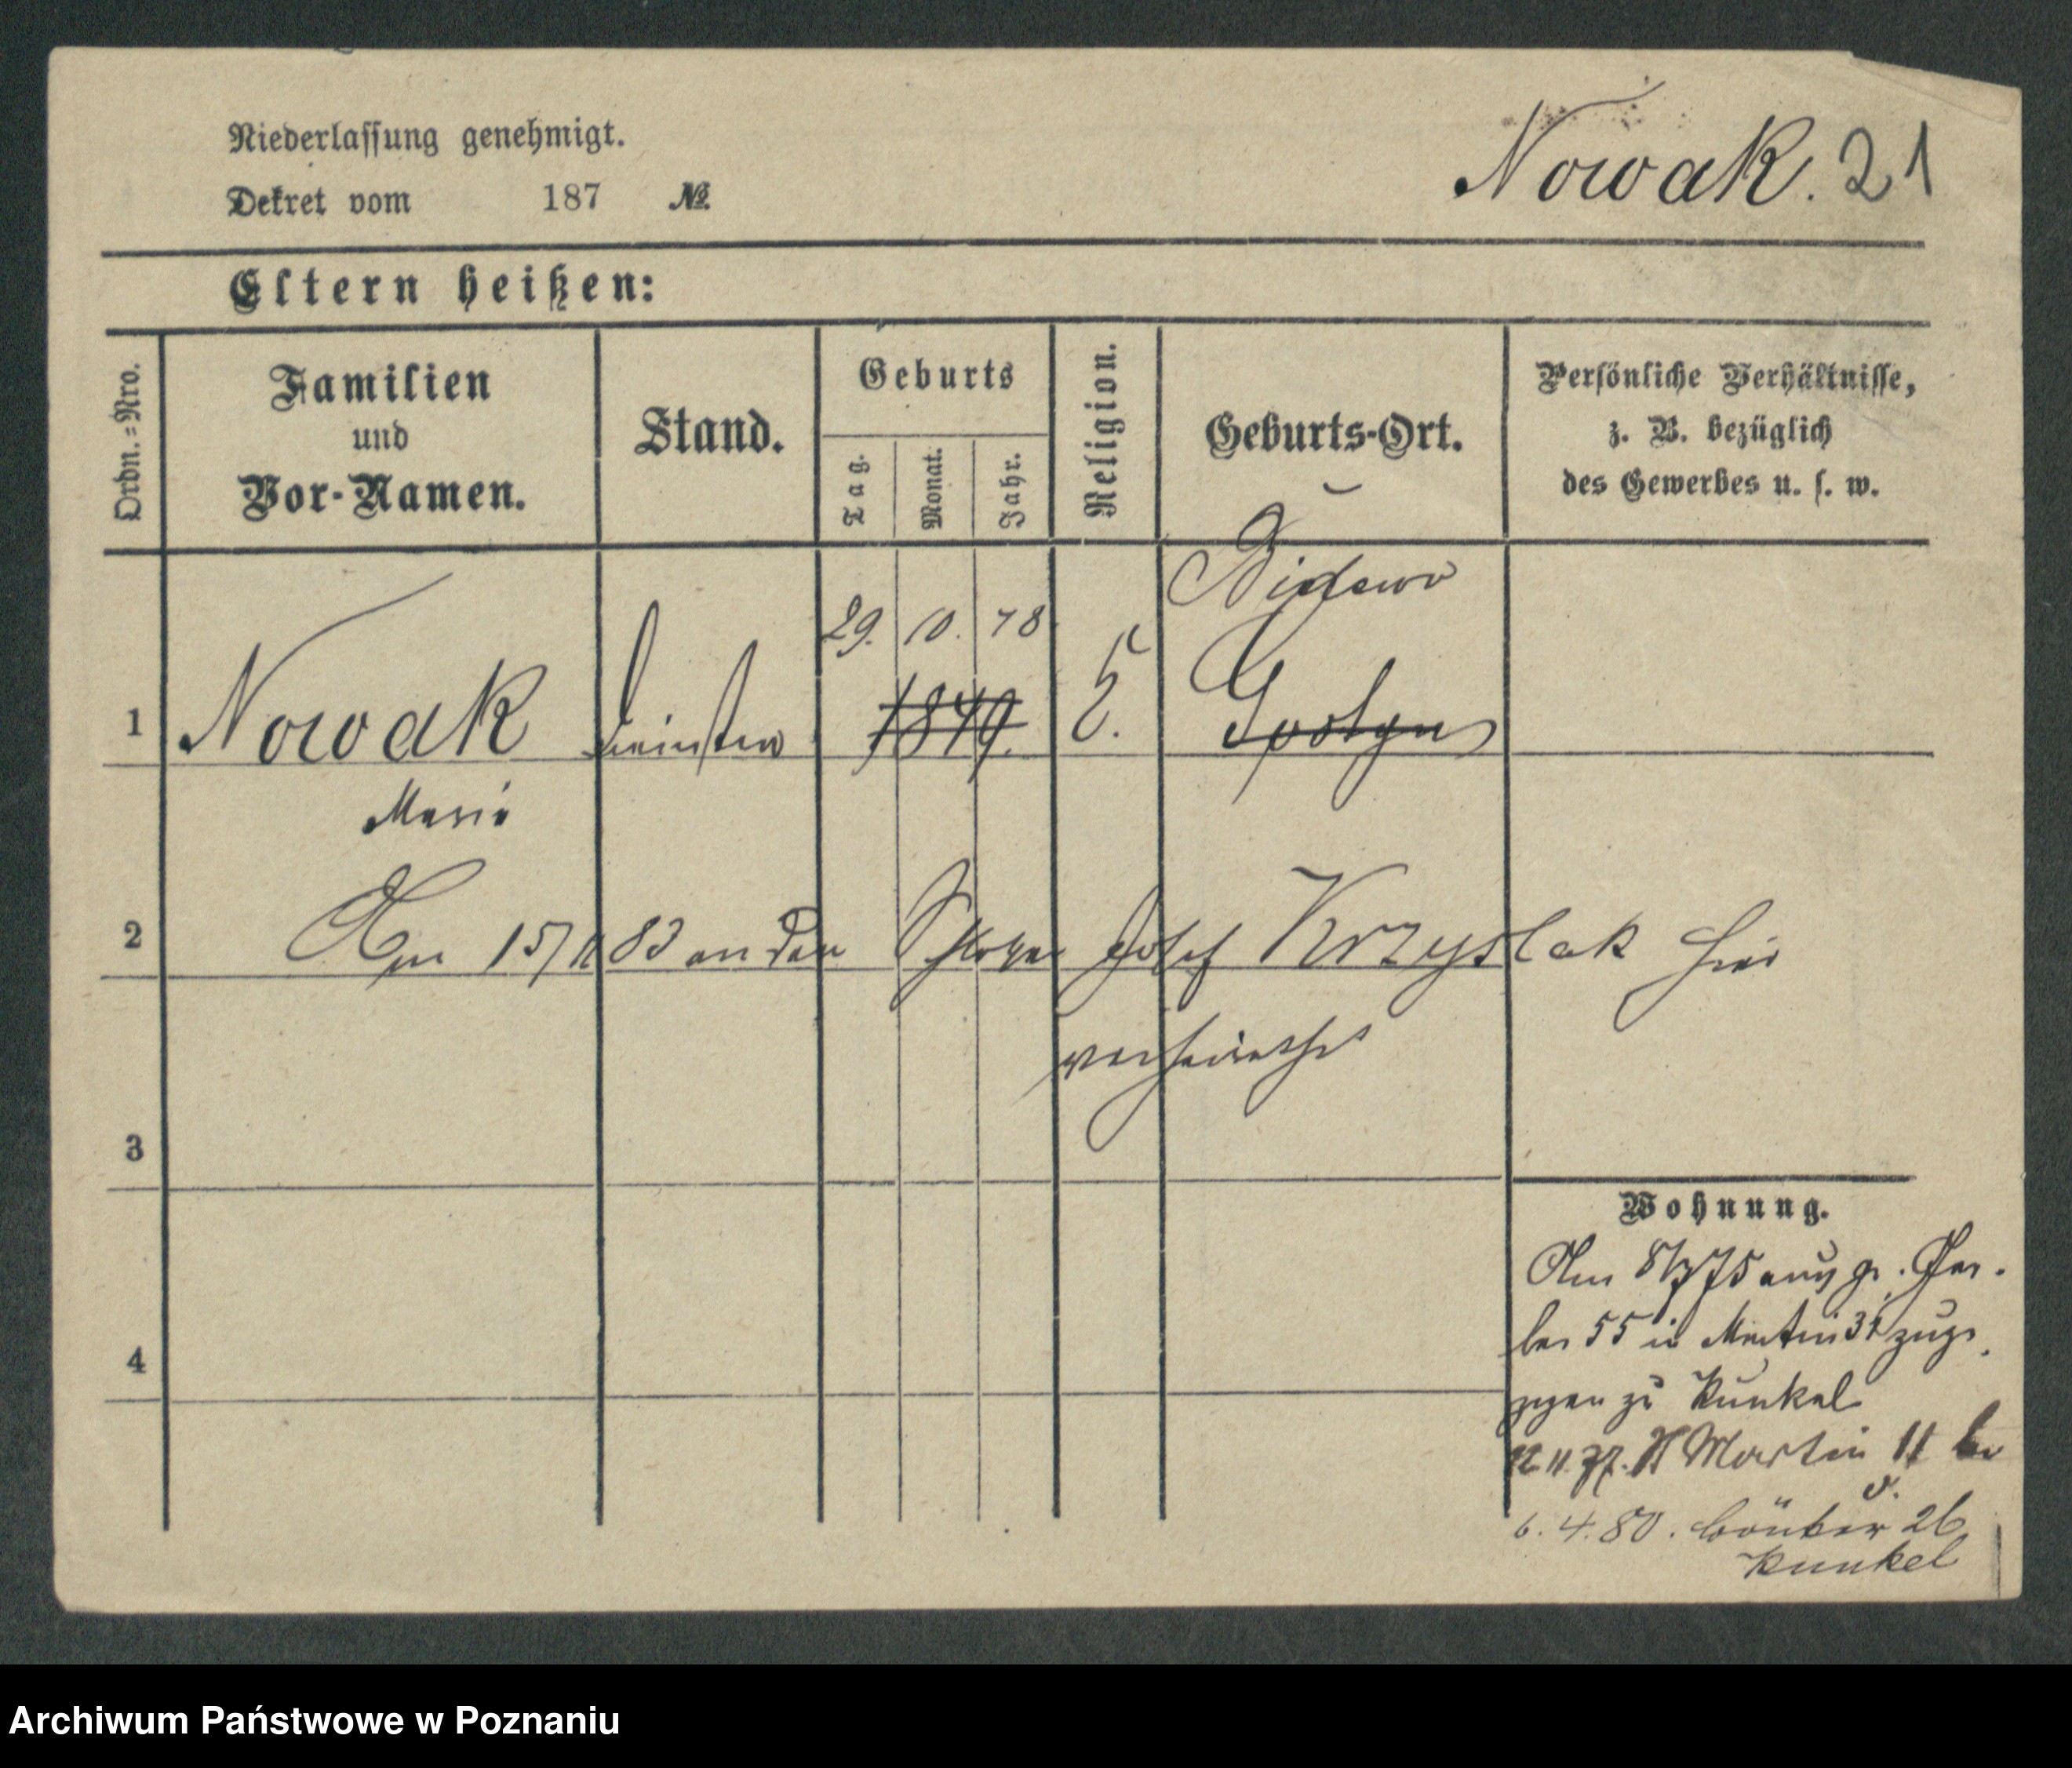 Niederlassung genehmigt.
Dekret vom 187 №
Nowak. 21
Eltern heißen:
Ordn.=Nro.
Familien
und
Vor-Namen.
Stand.
Geburts
Tag.
Monat.
Jahr.
Religion.
Geburts-Ort.
Persönliche Verhältnisse,
z. B. bezüglich
des Gewerbes u. s. w.
29. 10. 78
1 Nowak 1849.
Marie
2 Am 83 an den Josef Krzyslak hier
verheirathet
3
4
Wohnung.
Am
55 in Martin 31 zuge
zogen zu Kunkel
Martin 11
6. 4. 80. 26
Kunkel
Archiwum Państwowe w Poznaniu